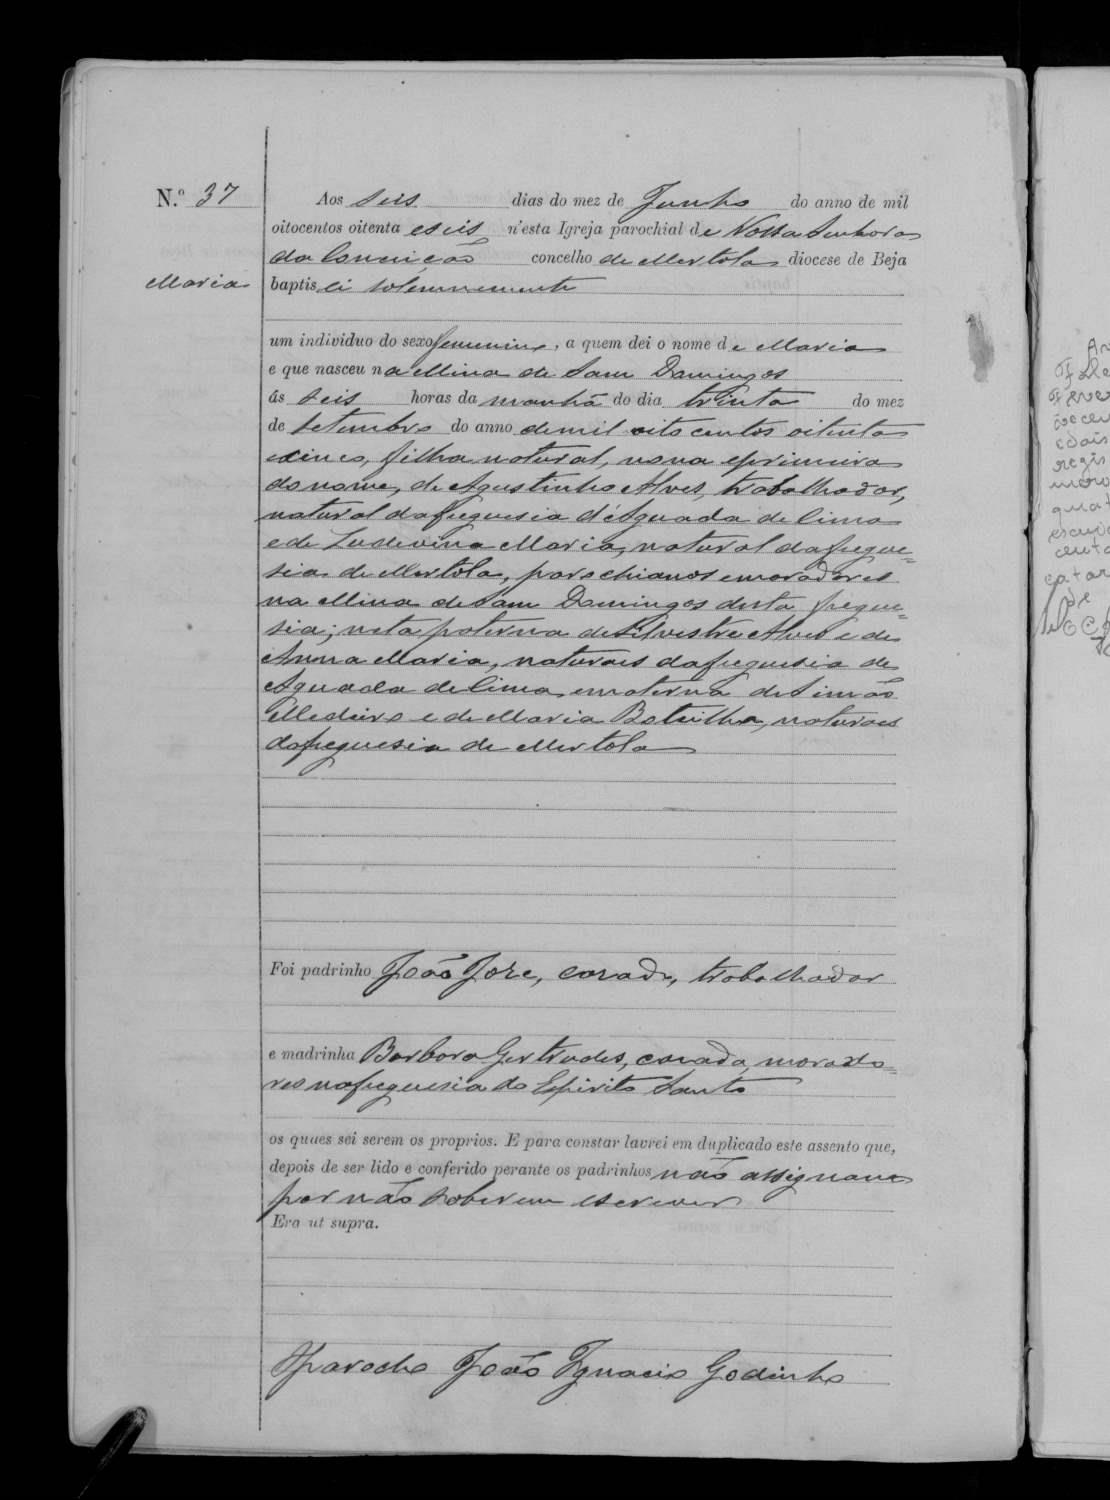 N.º 37
Aos seis dias do mez de Junho do anno de mil
oitocentos oitenta e seis n'esta Igreja parochial de Nossa Senhora
da Conceição concelho de Mertola diocese de Beja
Maria
baptisei solemnemente
um individuo do sexo femenino, a quem dei o nome de Maria
e que nasceu na Mina de Sam Domingos
ás seis horas da manhã do dia trinta do mez
de Setembro do anno de mil oito centos oitenta
e cinco, filha natural, nona e primeira
do nome, de Agustinho Alves, trabalhador,
natural da freguesia d'Aguada de Cima
e de Ludevina Maria, natural da fregue=
sia de Mertola, parochianos e moradores
na Mina de Sam Domingos desta fregue=
sia; neta paterna de Silvestre Alves e de
Anna Maria, naturaes da freguesia de
Aguada de Cima, e materna de Simão
Medeiro e de Maria Botilha, naturaes
da freguesia de Mertola
Foi padrinho João Jose, casado, trabalhador
e madrinha Barbora Gertrudes, casada, morado=
res na freguesia do Espirito Santo
os quaes sei serem os proprios. E para constar lavrei em duplicado este assento que,
depois de ser lido e conferido perante os padrinhos não assignam
por não saberem escrever
Era ut supra.
O Parocho João Ignacio Godinho